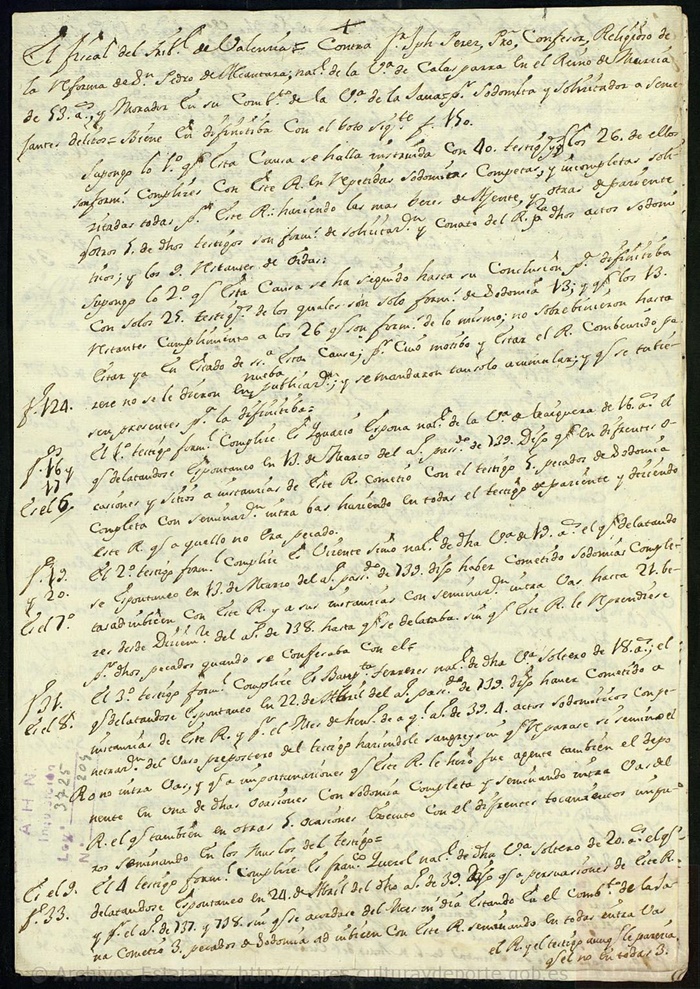 El fiscal del trib.l de Valencia = Contra fr. Jph Perez, Pro, Confesor, Religioso de
la reforma de Sn. Pedro de Alcantara, nat.l de la V.a de Calasparra en el Reino de Murcia
de 53. a.s, y Morador en su Comb.to de la V.a de la Jana = p.r Sodomita y solicitador a seme
jantes delitos = Biene en difinitiba con el boto sig.te f.o 150.
Supongo lo 1.o q.e esta Causa se halla instruida con 40. testig.s y los 26. de ellos
son form.s Complizes con este R. en repetidas sodomias Completas, y incompletas soli
citadas todas p.r este R.: haciendo las mas beces de Agente, y otras de paciente
q.e otros 5. de dhos testigos son form.s de solicitac.n y conato del R. p.a dhos actos sodomi
ticos; y los 9. restantes de oidas:
Supongo lo 2.o q.e esta Causa se ha seguido hasta su Conclusion p.a difinitiba
Con solos 25. testig.s de los quales son solo form.s de Sodomia 13; y q.e los 13.
restantes cumplimento a los 26 q.e son form.s de lo mismo; no sobrebinieron hasta
estar ya en estado de st.a esta causa; p.r cuio motibo y estar el R. Combencido pa
nueba
f.o 124. rece no se le dieron en publicac.n; y se mandaron tan solo acumular; y q.e se tubie
sen presentes p.a la difinitiba =
f.os 16 y 17 El 1.o testigo form.l Complize es Ygnacio Espona nat.l de la V.a de Traiguera de 16. a.s el
Es el 6. q.e delatandose espontaneo en 13. de Marzo del a.o pas.do de 739. Dijo q.e en difrentes o-
casiones y sitios a instancias de este R. cometio con el testigo 5. pecados de Sodomia
Completa con seminac.n intra bas haciendo en todas el testigo de paciente y diciendo
este R. q.e aquello no era pecado.
f.o 19. y 20. El 2.o testigo form.l Complize es Vicente Simo nat.l de dha V.a de 19. a.s el q.e delatando
Es el 7.o se espontaneo en 13. de Marzo del a.o pas.do de 739. dijo haber Cometido sodomias Comple
tas ad inbicen con este R. y a sus instancias con seminac.n intra vas hasta 21. be-
zes desde Diciem.e del a.o de 738. hasta q.e se delataba. sin q.e este R. le reprendiese
p.r dhos pecados quando se confesaba con el =
f.o 31. El 3.o testigo form.l Complize es Baup.ta Ferreres nat.l de dha V.a soltero de 18. a.s; el
Es el 8. q.e delatandose espontaneo en 22. de Abril del a.o pas.do de 739. dijo haver Cometido a
instancias de este R. y p.r el Mes de hen.o de aq.l a.o de 39. 4. actos sodomiticos con pe
netrac.n del vaso prepostero del testigo haciendole sangre, y sin q.e reparase si seminó el
R.o no intra vas, y q.e a importunaciones q.e este R. le hizo fue agente tambien el depo
nente en una de dhas ocasiones con sodomia Completa y seminando intra vas del
R. el q.e tambien en otras 5. ocasiones executó con el difrentes tocamientos impu-
ros seminando en los Muslos del testigo =
Es el 9. El 4 testigo form.l Complize es fran.co Querol nat.l de dha V.a soltero de 20. a.s el q.e
f.o 33. delatandose espontaneo en 24. de Abril del dho a.o de 39. Dijo q.e a persuaciones de este R.
y p.r el a.o de 737. y 738. sin q.e se acordase del Mes ni dia estando en el Comb.to de la Ja
na Cometio 3. pecados de Sodomia ad inbicen con este R. seminando en todas intra vas
el R. y el testigo aunq.e le parecia
q.e el no en todas 3.
A.H.N.
Inquisicion
Leg.o 3725
N.o 209
© Archivos Estatales, http://pares.culturaydeporte.gob.es